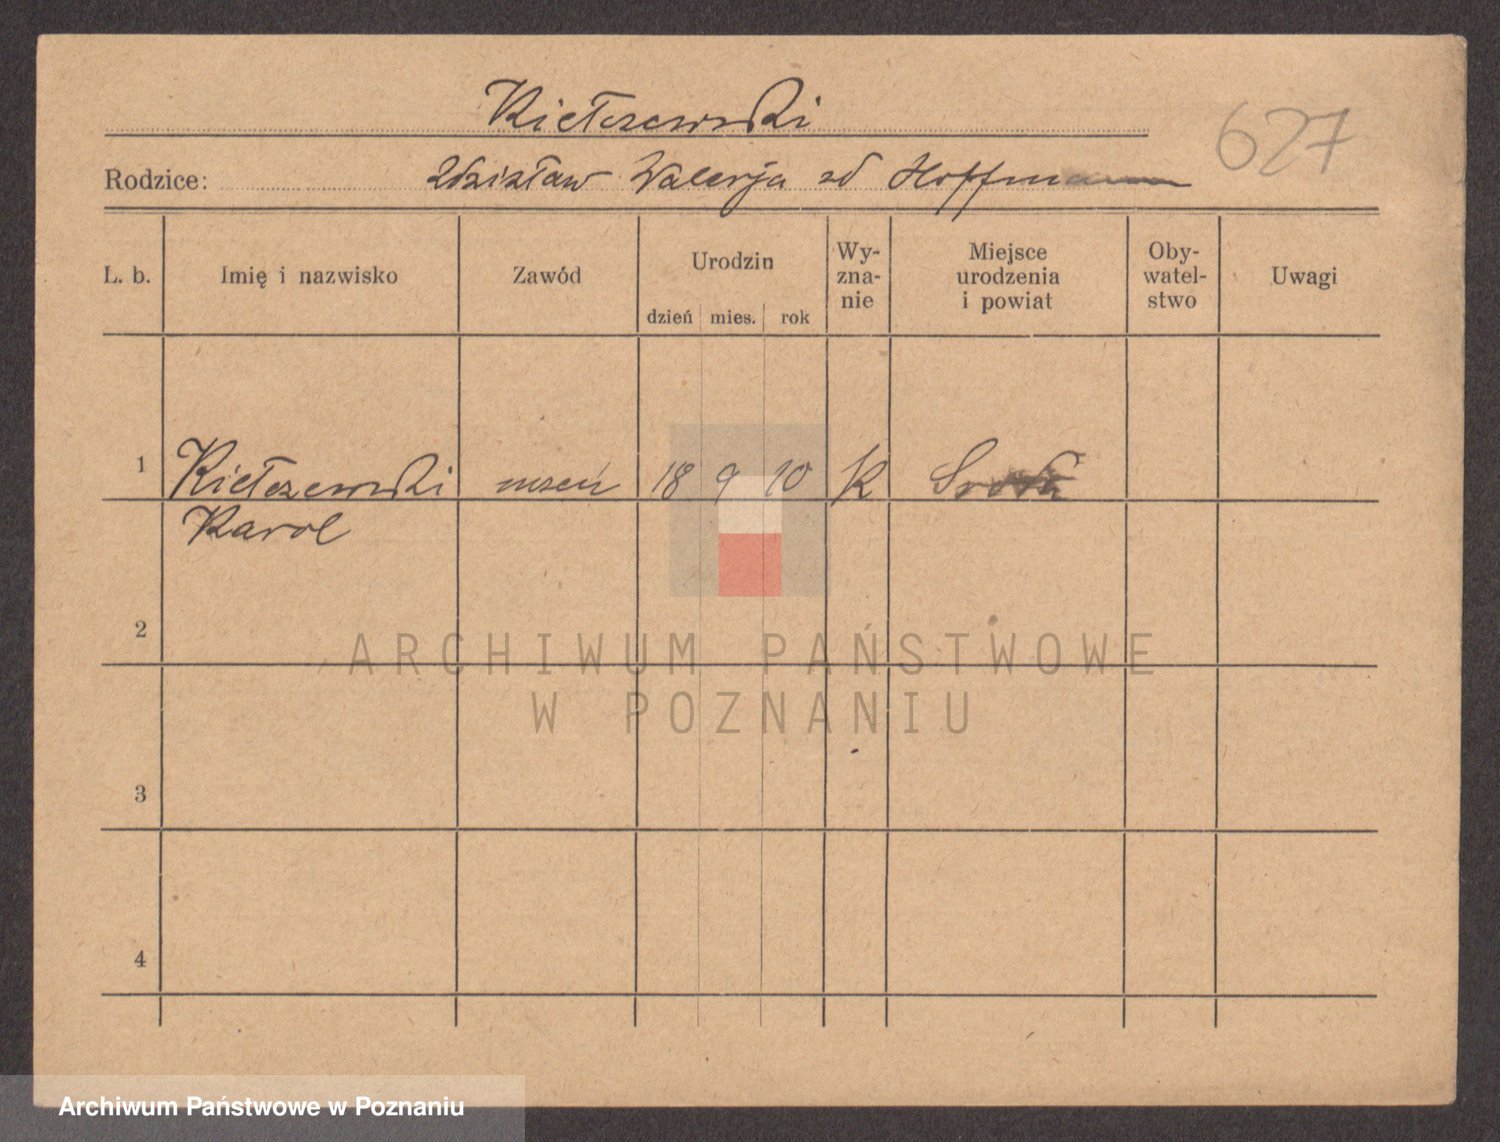 Kiełczewski
627
Rodzice: Zdzisław Walerja zd Hoffmann
L. b. Imię i nazwisko Zawód Urodzin Wy-zna-nie Miejsce urodzenia i powiat Oby-watel-stwo Uwagi
dzień mies. rok
1 Kiełczewski uczeń 18 9 10 K Środa
Karol
2
3
4
ARCHIWUM PAŃSTWOWE
W POZNANIU
Archiwum Państwowe w Poznaniu